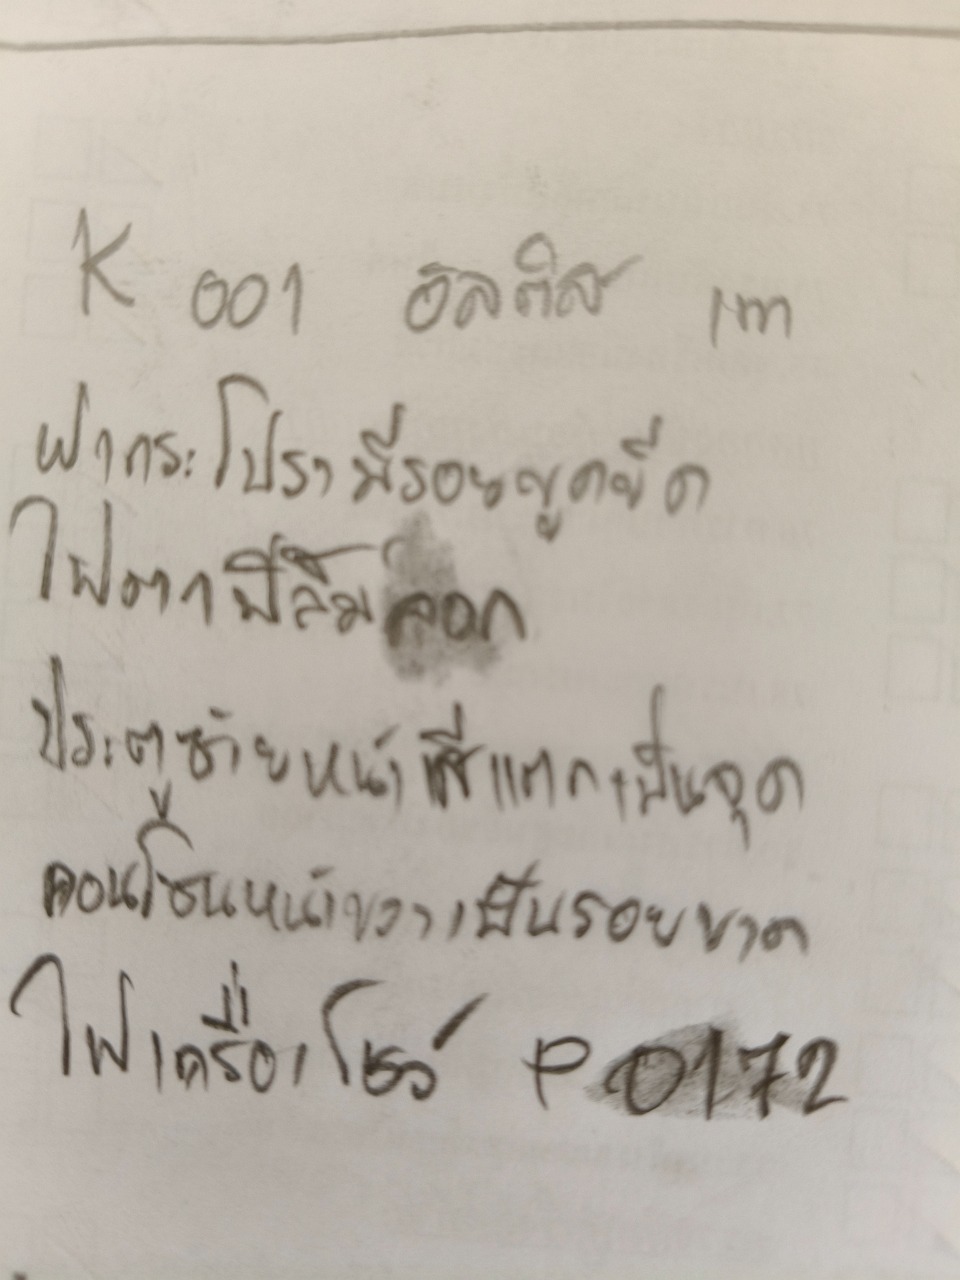 K 001 อัลติส เทา
ฝากระโปรา มีรอยขูดขีด
ไฟตาก ฟิล์ม ลอก
ประตูซ้ายหน้า สีแตกเป็นจุด
คอนโซนหน้าขวาเป็นรอยขาด
ไฟเครื่อง โชว์ P 0172